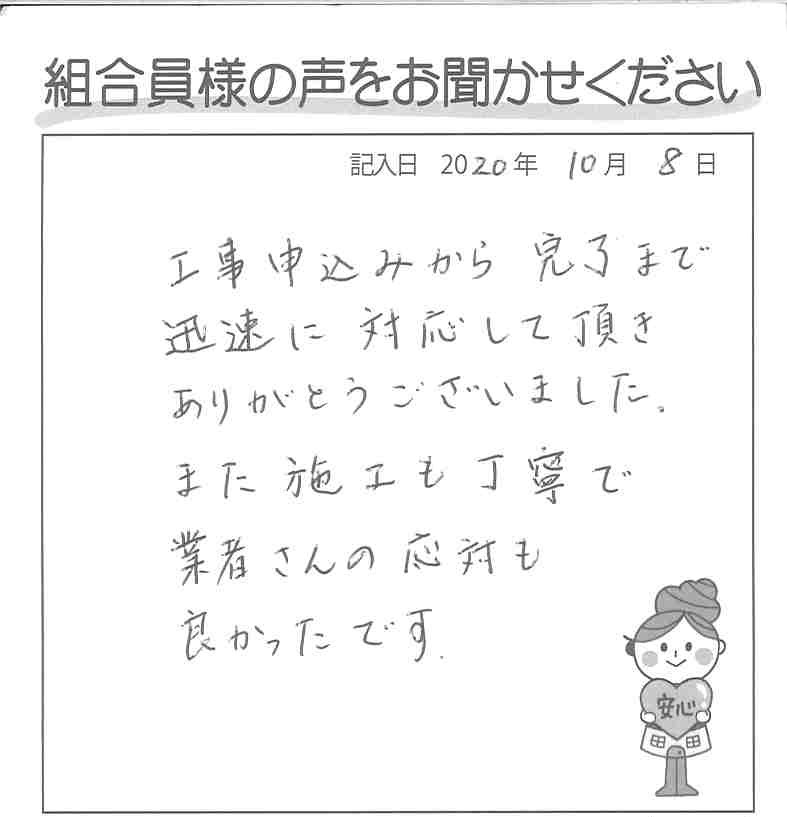 組合員様の声をお聞かせください
記入日 2020年 10月 8日
工事申込みから 完了まで
迅速に 対応して頂き
ありがとうございました。
また 施工も丁寧で
業者さんの 応対も
良かったです.
安心